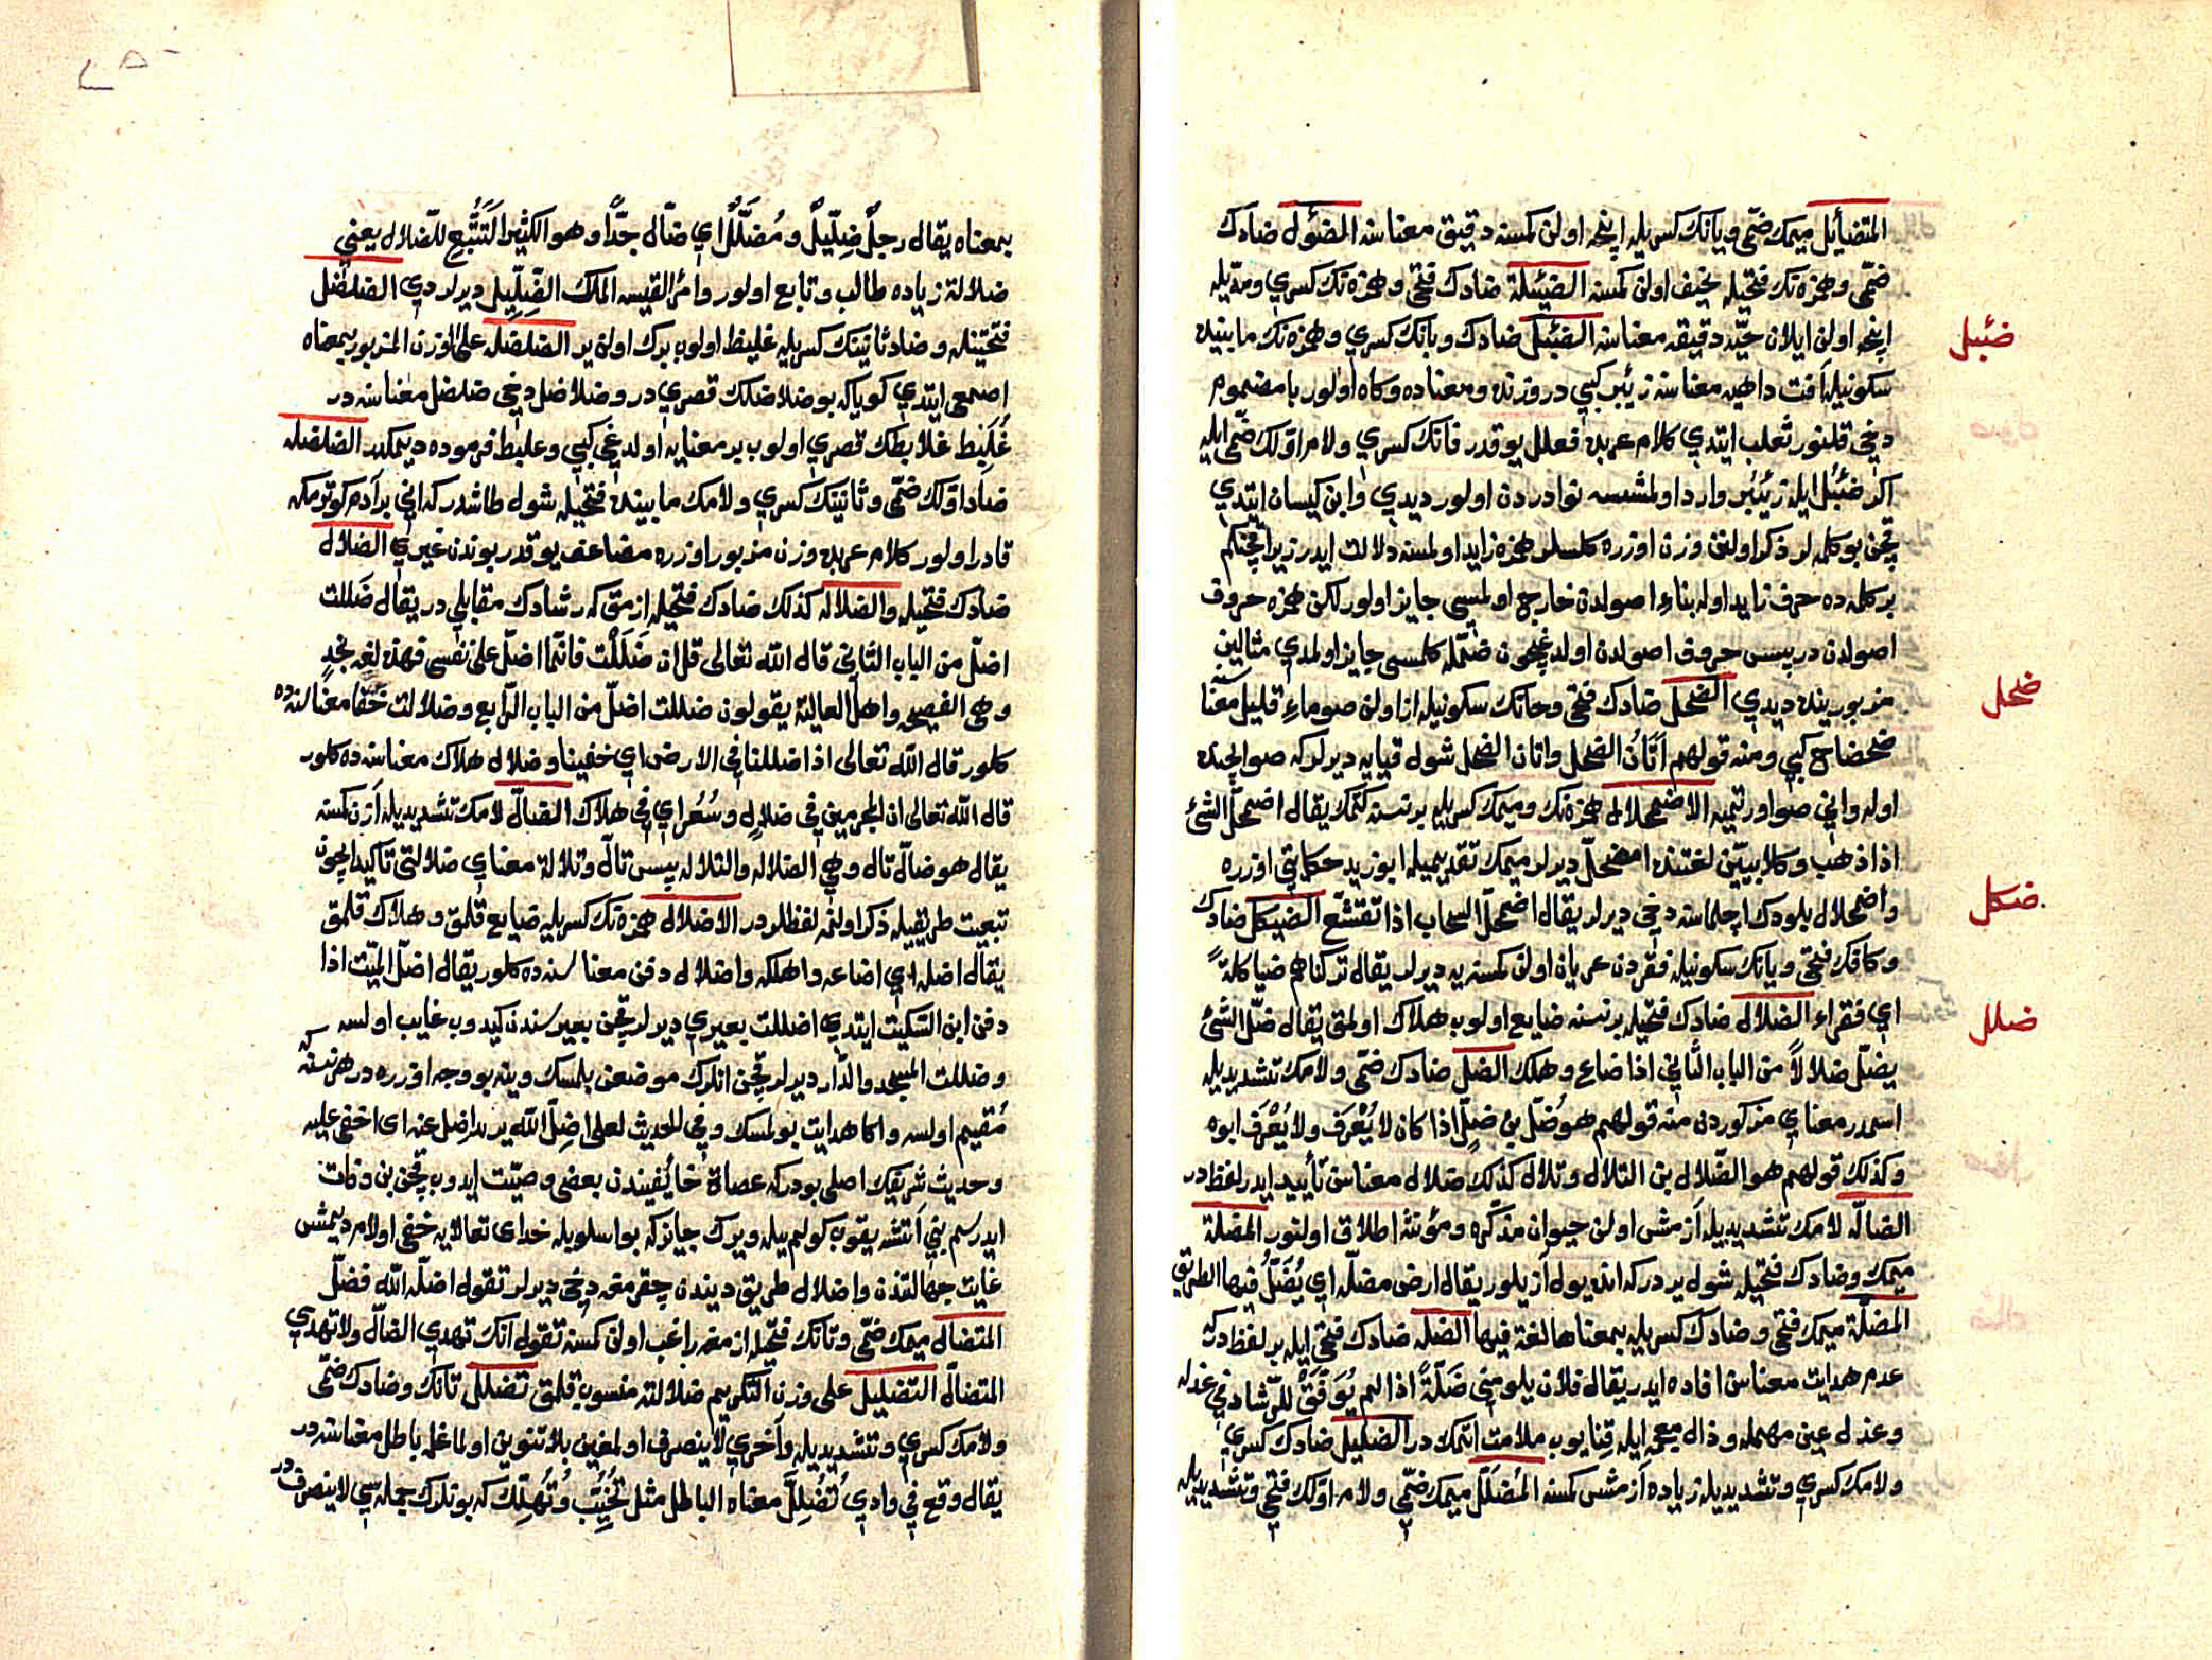 المتضائل ميمك ضمّى ويانك كسريله اينجه اولن كمسنه دقيق معناسنه المضئول ضادك
ضمّى وهمزه نك فتحيله نحيف اولن كمسنه الضئيلة ضادك فتحى وهمزه نك كسرى ومدّيله
اينجه اولن ايلان حيّه دقيقه معناسنه الضئبل ضادك وبانك كسرى وهمزه نك مابينده
ضئبل
سكونيله آفت داهيه معناسنه زئبر كبى در وزنده ومعناده وكاه اولور با مضموم
دخى قلنور ثعلب ايتدى كلام عربده فعلل يوقدر فانك كسرى ولام اوّلك ضمّى ايله
اكر ضئبُل ايله زئبُر وارد اولمشسه نوادردن اولور ديدى وابن كيسان ايتدى
قچن بو كلمه لر ذكر اولنن وزن اوزره كلسلر همزه زايد اولمسنه دلالت ايدر زيرا قچنكم
بر كلمه ده حرف زايد اوله بناء اصولدن خارج اولمسى جايز اولور لكن همزه حروف
اصولدن در پس حروف اصولدن اولدغيچون ضمّله كلمسى جايز اولمدى مثالين
مزبورينده ديدى الضحل ضادك فتحى وحانك سكونيله از اولن صو ماء قليل معناسنه
ضحل
ضحضاح كبى ومنه قولهم أتان الضحل واتان الضحل شول قيايه ديرلر كه صو ايچنده
اوله وانى صو اورتميه الاضمحلال همزه نك وميمك كسريله بر نسنه كتمك يقال اضمحلّ الشئ
اذا ذهب وكلابيّين لغتنده امضحلّ ديرلر ميمك تقديميله ابو زيد حكايتى اوزره
واضمحلال بلودك اچلماسنه دخى ديرلر يقال اضمحلّ السحاب اذا تقشّع الضيكل ضادك
ضكل
وكافك فتحى ويانك سكونيله فقردن عريان اولن كمسنه يه ديرلر يقال تركناهم ضياكلةً
اى فقراء الضلال ضادك فتحيله بر نسنه ضايع اولوب هلاك اولمق يقال ضلّ الشئ
ضلل
يضلّ ضلالاً من الباب الثانى اذا ضاع وهلك الضلّ ضادك ضمّى ولامك تشديديله
اسمدر معناى مذكوردن منه قولهم هو ضُلّ بن ضلٍّ اذا كان لا يُعْرَف ولا يُعْرَف ابوه
وكذلك قولهم هو الضّلال بن التلال وتلال كذلك ضلال معناسن تأييد ايدر لفظ در
الضالّه لامك تشديديله آزمش اولن حيوان مذكّره ومؤنثه اطلاق اولنور المضلة
ميمك وضادك فتحيله شول يردر كه انده يول آزيلور يقال ارض مضلّه اى يُضَلّ فيها الطريق
المضلّة ميمك فتحى وضادك كسريله بمعناها لغة فيها الضله ضادك فتحى ايله بر لفظ در كه
عدم هدايت معناسن افاده ايدر يقال فلان يلومنى ضَلّةً اذا لم يُوَفَّقْ للرّشاد فى عذله
وعذل عين مهمله وذال معجمه ايله قنايوب ملامت ايتمك در الضليل ضادك كسرى
ولامك كسرى وتشديديله زياده آزمش كمسنه المُضلَّل ميمك ضمّى ولام اوّلك فتحى وتشديديله
بمعناه يقال رجلٌ ضِلّيلٌ ومُضَلَّلٌ اى ضالّ جدّاً وهو الكثير التَتَبُّعِ للضّلال يعنى
ضلالة زياده طالب وتابع اولور وامرئ القيسه الملك الضِّلِّيل ديرلر دى الضلضل
فتحتينله وضاد ثانيتك كسريله غليظ اولوب برك اولن ير الضلضله على وزن المزبور بمعناه
اصمعى ايتدى كويا كه بو ضلاضلك قصرى در وضلاضل دخى ضلضل معناسنه در
عُلَبِط علابطك قصرى اولوب بر معنايه اولدغى كبى وعلبط فرموده ديمكدر الضلضله
ضاد اوّلك ضمّى وثانيتك كسرى ولامك مابينده فتحيله شول طاشدر كه انى بر آدم كوتورمكه
قادر اولور كلام عربده وزن مزبور اوزره مضاعف يوقدر بوندن غيرى الضلال
ضادك فتحيله والضلاله كذلك ضادك فتحيله ازمق كه رشادك مقابلى در يقال ضَللت
اضلّ من الباب الثانى قال الله تعالى قل ان ضَلَلْت فانّما اضلّ على نفسى فهذه لغة نجدٍ
وهى الفصيحه واهل العالية يقولون ضللت اضلّ من الباب الرّابع وضلالت خفا معناسنده ده
كلور قال الله تعالى اذا ضللنا فى الارض اى خفينا وضلال هلاك معناسنه ده كلور
قال الله تعالى ان المجرمين فى ضلال وسُعُر اى فى هلاك الضالّ لامك تشديديله آزن كمسنه
يقال هو ضالّ تالّ وهى الضلاله والتلاله پس تالّ وتلالة معناى ضلالتى تأكيد ايچون
تبعيت طريقيله ذكر اولنمه لفظلردر الاضلال همزه نك كسريله ضايع قلمق وهلاك قلمق
يقال اضله اى اضاعه واهلكه واضلال دفن معناسنده ده كلور يقال اضلّ الميّت اذا
دفن ابن السّكيت ايتدى اضللت بعيرى ديرلر قچن بعير سندن كيدوب غايب اولسه
وضللت المسجد والدّار ديرلر قچن انلرك موضعن بلمسك وينه بو وجه اوزره در هر نسنه كه
مُقيم اولسه واكا هدايت بولمسك وفى الحديث لعلى اضِلّ الله يريد اضل عنه اى اخفى عليه
وحديث شريفك اصلى بودر كه عصاة خائفيندن بعضى وصيّت ايدوب قچن بن وفات
ايدرسم بنى آتشه يقوب كولمى يله ويرك جايز كه بو اسلوبله خداى تعالايه خفى اولام ديمش
غايت جهالتندن واضلال طريق ديندن چقرمغه دخى ديرلر تقول اضلّه الله فضلّ
المتضالّ ميمك ضمّى وتانك فتحيله ازمغه راغب اولن كمسنه تقول انك تهدى الضالّ ولا تهدى
المتضالّ التضليل على وزن التكريم ضلالته منسوب قلمق تضلل تانك وضادك ضمّى
ولامك كسرى وتشديديله وآخرى لا ينصرف اولمغين بلا تنوين اولماغله باطل معناسنه در
يقال وقع فى وادى تُضُلِّلَ معناه الباطل مثل تُخُيِّبَ وتُهُلِّكَ كه بونلرك جمله سى لا ينصرف در